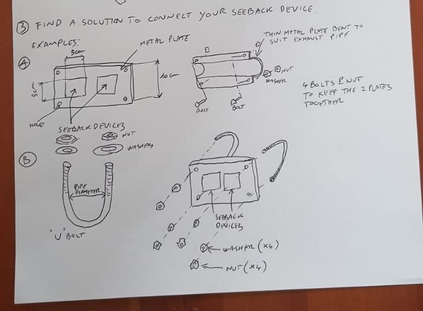 ③ FIND A SOLUTION TO CONNECT YOUR SEEBACK DEVICE.
EXAMPLES:
A
5cm
METAL PLATE
10cm
5cm
HOLE
SEEBACK DEVICES
NUT
WASHERS
THIN METAL PLATE BENT TO
SUIT EXHAUST PIPE
NUT
WASHER
BOLT
BOLT
4 BOLTS & NUT
TO KEEP THE 2 PLATES
TOGETHER
B
PIPE
DIAMETER
'U' BOLT
SEEBACK
DEVICES
WASHER (x4)
NUT (x4)